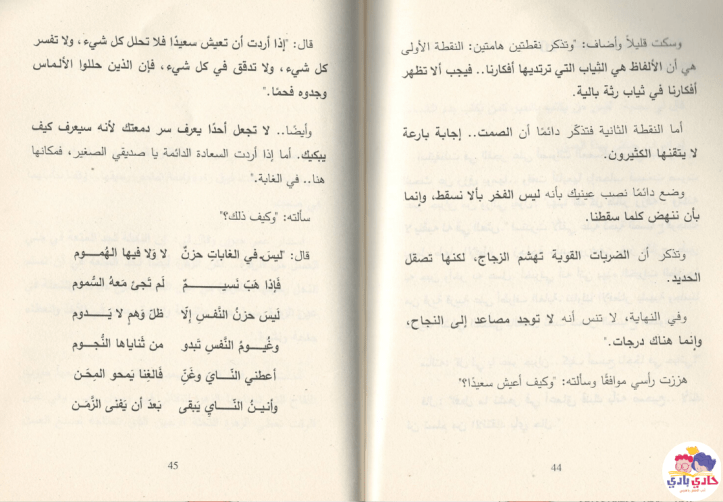 وسكت قليلاً وأضاف: "وتذكر نقطتين هامتين: النقطة الأولى
هي أن الألفاظ هي الثياب التي ترتديها أفكارنا.. فيجب ألا تظهر
أفكارنا في ثياب رثة بالية.
أما النقطة الثانية فتذكّر دائمًا أن الصمت.. إجابة بارعة
لا يتقنها الكثيرون.
وضع دائمًا نصب عينيك بأنه ليس الفخر بألا نسقط، وإنما
بأن ننهض كلما سقطنا.
وتذكر أن الضربات القوية تهشم الزجاج، لكنها تصقل
الحديد.
وفي النهاية، لا تنس أنه لا توجد مصاعد إلى النجاح،
وإنما هناك درجات".
هززت رأسي موافقًا وسألته: "وكيف أعيش سعيدًا؟"
44
قال: "إذا أردت أن تعيش سعيدًا فلا تحلل كل شيء، ولا تفسر
كل شيء، ولا تدقق في كل شيء، فإن الذين حللوا الألماس
وجدوه فحمًا."
وأيضًا.. لا تجعل أحدًا يعرف سر دمعتك لأنه سيعرف كيف
يبكيك. أما إذا أردت السعادة الدائمة يا صديقي الصغير، فمكانها
هنا.. في الغابة."
سألته: "وكيف ذلك؟"
قال: "ليسَ في الغاباتِ حزنٌ لا وَلا فيها الهُموم
فَإذا هَبّ نَسيمٌ لَم تَجئ مَعهُ السَّموم
لَيسَ حزنُ النَّفسِ إلّا ظلّ وَهمٍ لا يَدوم
وغُيومُ النَّفسِ تَبدو من ثَناياها النُّجوم
أعطني النَّايَ وغَنّ فَالغِنا يمحو المِحَن
وأنينُ النَّاي يَبقى بَعدَ أن يَفنى الزَّمَن
45
حادي بادي